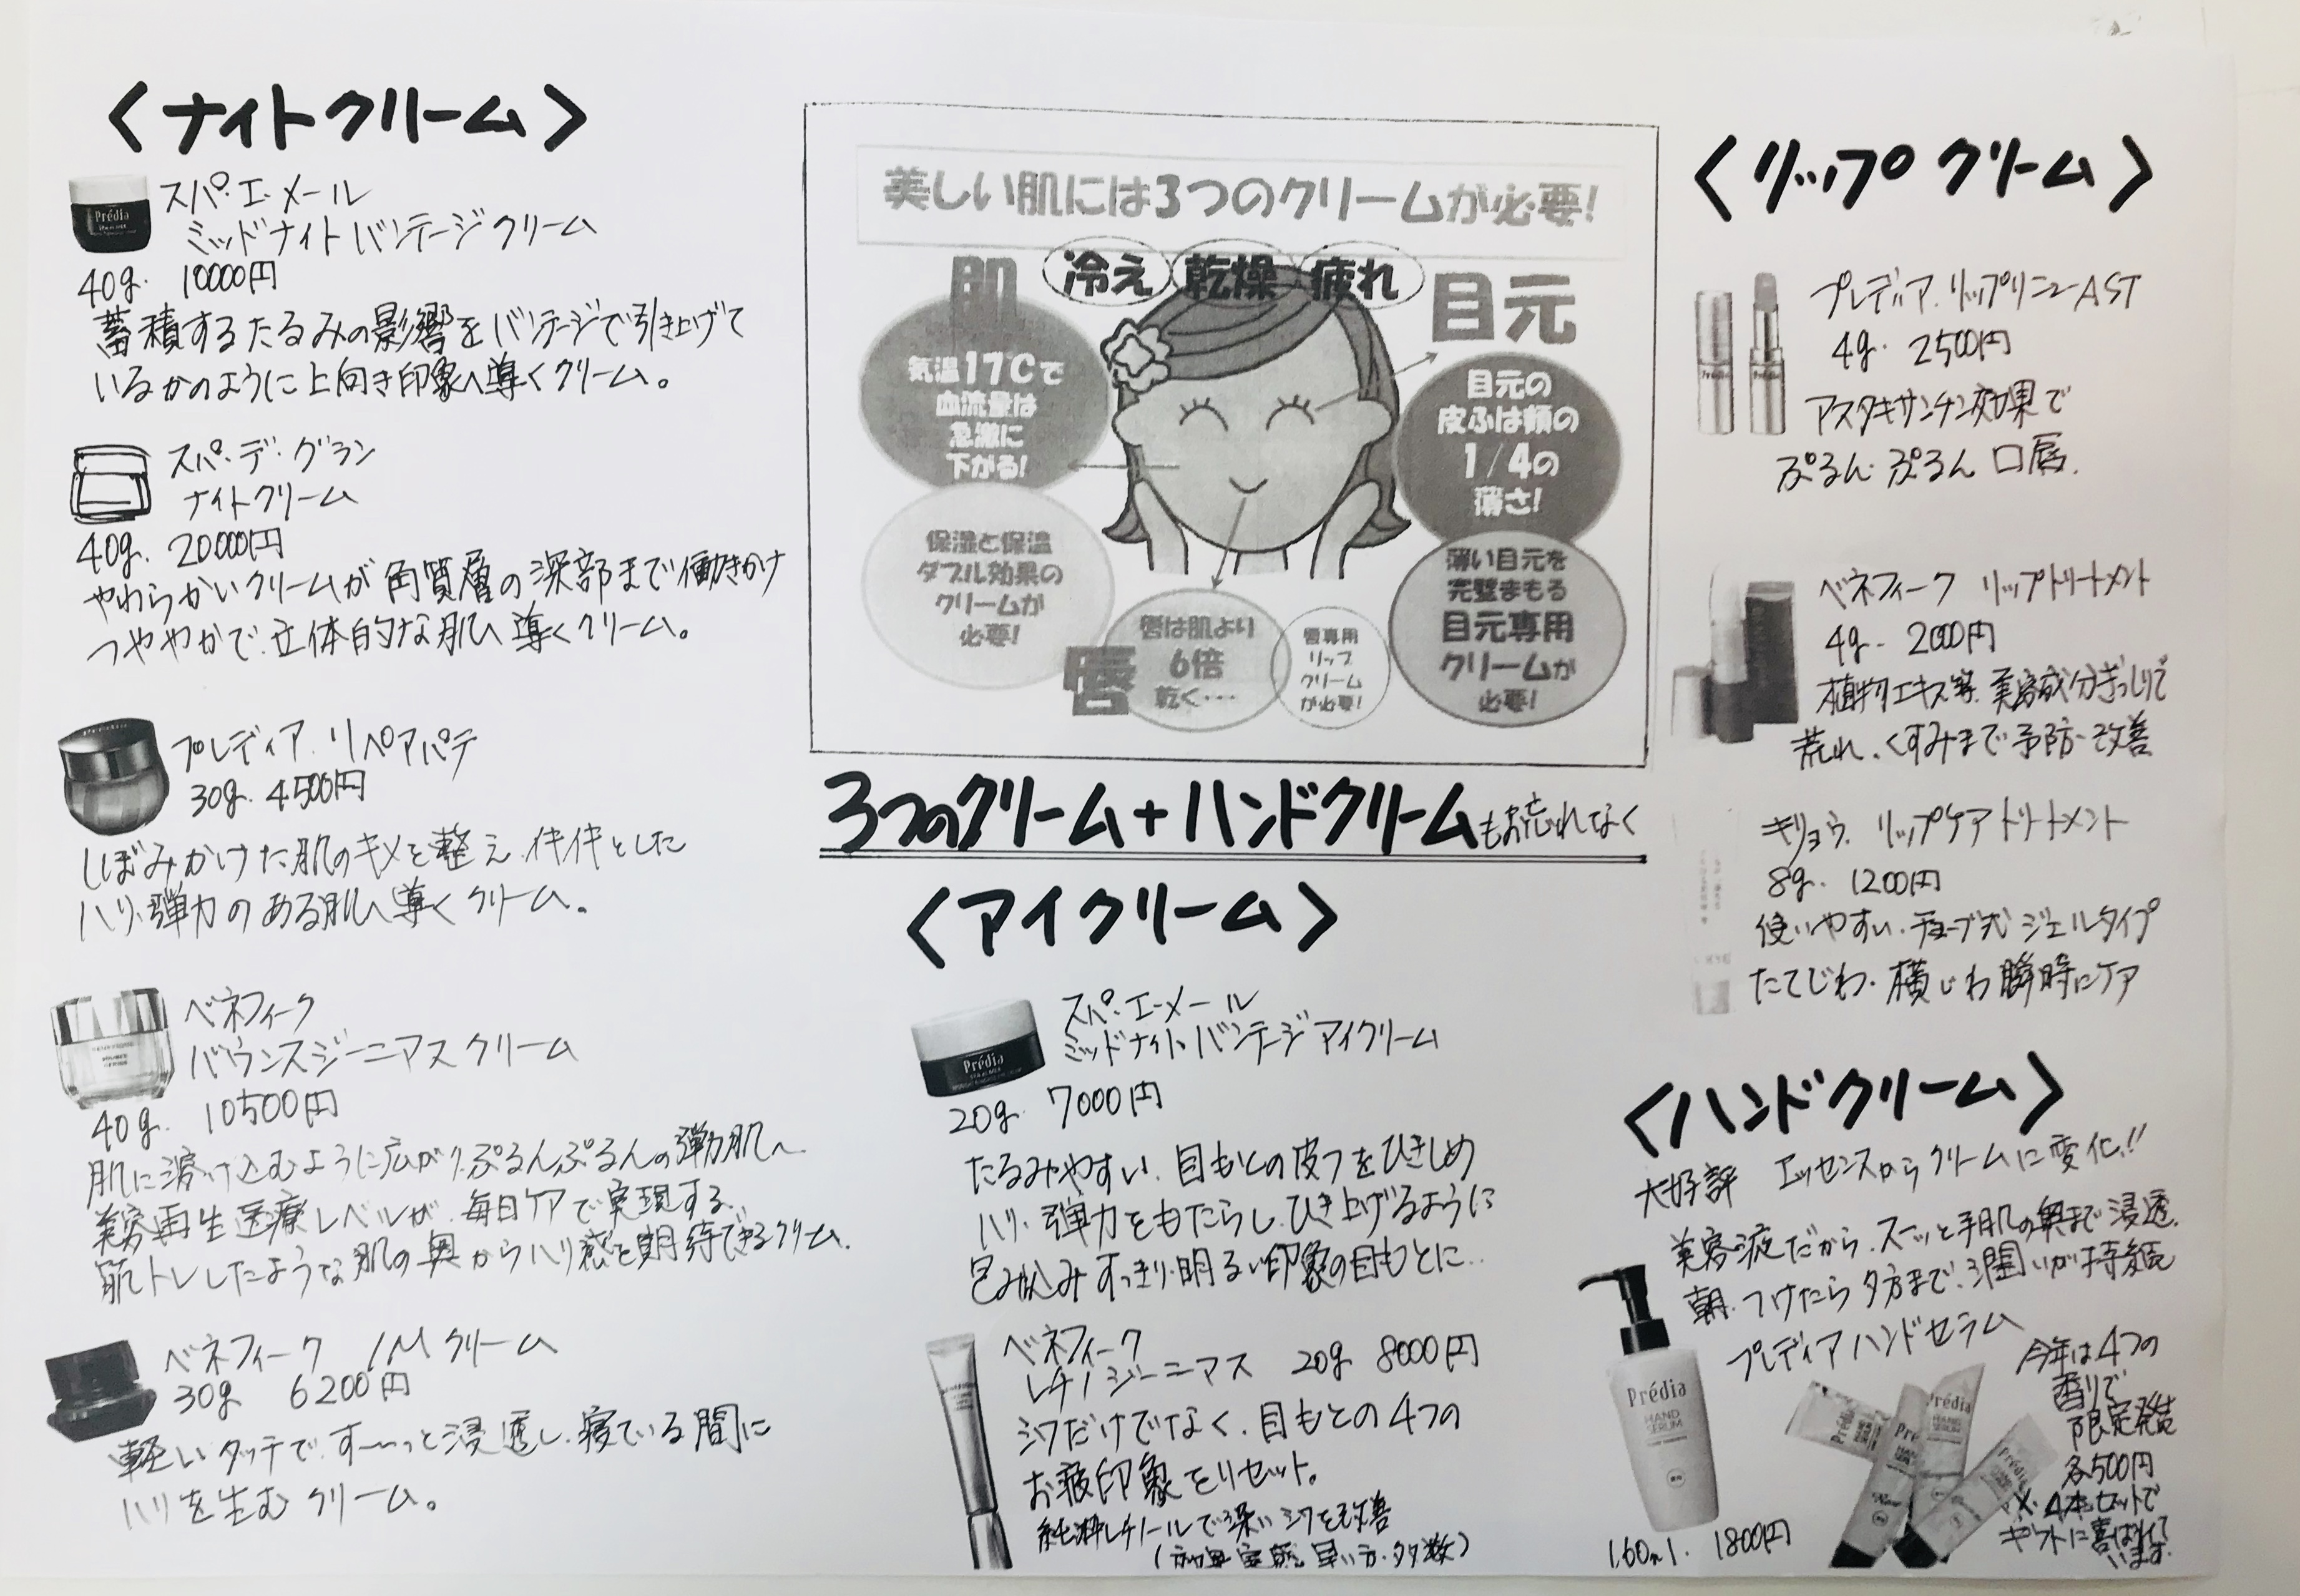 <ナイトクリーム>
スパ・エ・メール
ミッドナイトバンテージクリーム
40g. 10000円
蓄積するたるみの影響をバンテージで引き上げて
いるかのように上向き印象へ導くクリーム。
スパ・デ・グラン
ナイトクリーム
40g. 20000円
やわらかいクリームが角質層の深部まで働きかけ
つややかで、立体的な肌へ導くクリーム。
プレディア、リペアパテ
30g. 4500円
しぼみかけた肌のキメを整え、イキイキとした
ハリ、弾力のある肌へ導くクリーム。
ベネフィーク
バウンスジーニアスクリーム
40g. 10500円
肌に溶け込むように広がり、ぷるんぷるんの弾力肌へ
美容再生医療レベルが、毎日ケアで実現する、
筋トレしたような肌の奥からハリ感を期待できるクリーム。
ベネフィーク IMクリーム
30g 6200円
軽いタッチで、す〜っと浸透し、寝ている間に
ハリを生むクリーム。
美しい肌には3つのクリームが必要!
肌
冷え
乾燥
疲れ
目元
気温17℃で
血流量は
急激に
下がる!
保湿と保温
ダブル効果の
クリームが
必要!
目元の
皮ふは頬の
1/4の
薄さ!
薄い目元を
完璧まもる
目元専用
クリームが
必要!
唇
唇は肌より
6倍
乾く…
唇専用
リップ
クリーム
が必要!
3つのクリーム+ハンドクリームもお忘れなく
<アイクリーム>
Prédia
スパ・エ・メール
ミッドナイト、バンテージアイクリーム
20g. 7000円
たるみやすい、目もとの皮フをひきしめ
ハリ、弾力をもたらし、ひき上げるように
包み込みすっきり・明るい印象の目もとに..
ベネフィーク
レチノジーニアス 20g 8000円
シワだけでなく、目もとの4つの
お疲印象をリセット。
純粋レチノールで深いシワを改善
(効果実感、早い方、多数)
<リップクリーム>
プレディア、リップリニューAST
4g. 2500円
アスタキサンチン効果で
ぷるん・ぷるん口唇.
ベネフィーク リップトリートメント
4g. 2000円
植物エキス等、美容成分ぎっしりで
荒れ、くすみまで予防・改善
キリョウ、リップケアトリートメント
8g. 1200円
使いやすい、チューブ式ジェルタイプ
たてじわ・横じわ瞬時にケア
<ハンドクリーム>
大好評 エッセンスからクリームに変化!!
美容液だから、スーッと手肌の奥まで浸透、
朝、つけたら夕方まで、潤いが持続
プレディアハンドセラム
Prédia
HAND
SERUM
160ml. 1800円
今年は4つの
香りで
限定発売
各500円
※ 4本セットで
ギフトに喜ばれて
います.